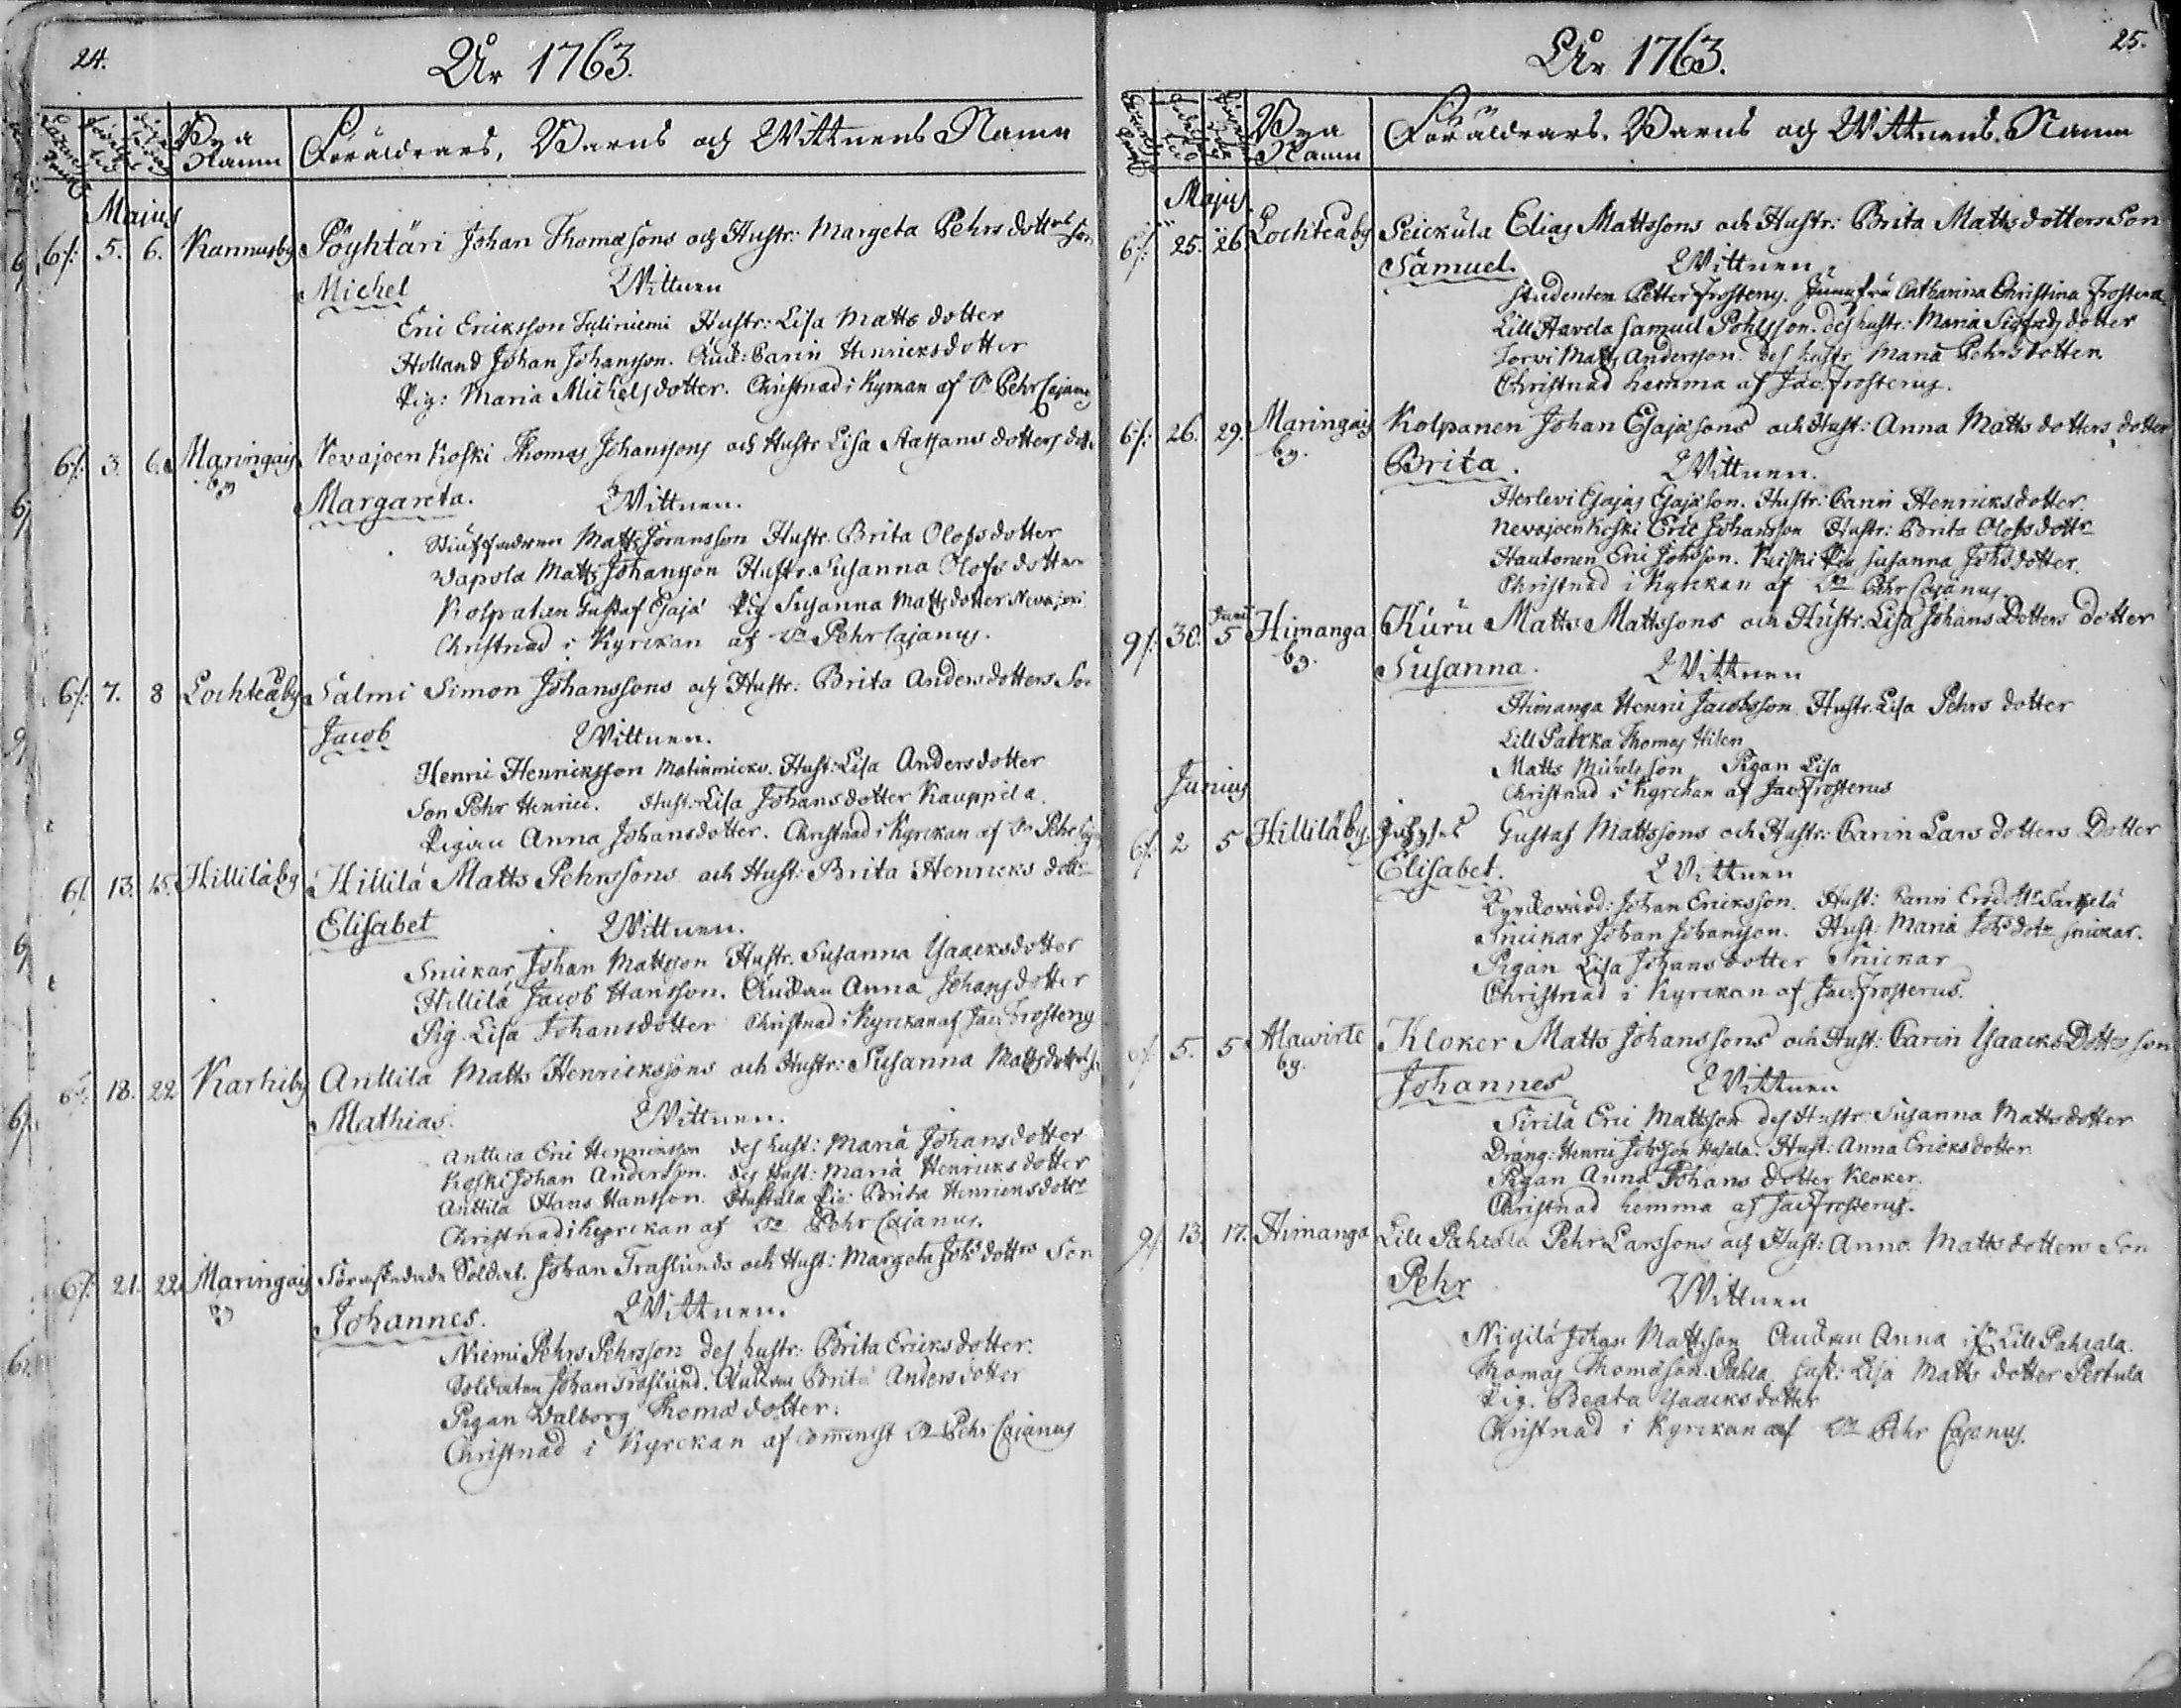 24.
År 1763.
Bya Namn
Föräldrars, Barns och Wittnens Namn
Majus
6/: 5. 6. Kannusby Pöyhtäri Johan Thomæsons och Hustr: Margeta Pehrsdotters son
Michel Wittnen
Eric Ericksson Hustr: Lisa Matts dotter
Holland Johan Johansson. Änck: Carin Henricksdotter
Pig: Maria Michelsdotter. Christnad i Kyrnan af Dn Pehr Cajanus
6/: 3. 6. Maringais by Nevajoen Koski Thomas Johanssons och Hustr Lisa Staffans dotters dotter
Margareta. Wittnen.
Matts Göransson Hustr. Brita Olofsdotter
Wapola Matts Johansson Hustr. Susanna Olofs dotter
Gustaf Esajæ Pig Susanna Mattsdotter Nevajoen
Christnad i Kyrckan af Dn Pehr Cajanus.
6/: 7. 8 Lochteåby Salmi Simon Johanssons och Hustr: Brita Andersdotters Son
Jacob Wittnen.
Henric Henricksson Hust: Lisa Andersdotter
Son Pehr Henrici. Hust: Lisa Johansdotter Kauppila.
Pigan Anna Johansdotter. Christnad i Kyrckan af Dn Pehr
6/. 13. 15. Hillilä by Hillilä Matts Pehrssons och Hust: Brita Henricks dottr
Elisabet Wittnen.
Snickar Johan Mattsson Hustr. Susanna Ysaacksdotter
Hillilä Jacob Hansson. Änckan Anna Johansdotter
Pig. Lisa Johansdotter Christnad i Kyrckan af Jac: Frosterus
6/: 18. 22 Karhiby Anttila Matts Henrickssons och Hustr: Susanna Mattsdotters
Mathias. Wittnen.
Anttila Eric Henricksson des hust: Maria Johansdotter
Koski Johan Andersson. des Hust: Maria Henricksdotter
Anttila Hans Hansson. Pig: Brita Henricksdottr
Christnad i Kyrckan af Dn Pehr Cajanus.
6/: 21. 22 Maringais by Soldat. Johan Traslunds och Hust: Margeta Johs dottrs Son
Johannes. Wittnen.
Niemi Pehrs Pehrsson des hustr: Brita Ericksdotter.
Soldaten Johan Traslund. Änckan Brita Andersdotter
Pigan Walborg Thomædotter.
Christnad i Kyrckan af Comminist Dn Pehr Cajanus
25.
År 1763.
Bya Namn
Föräldrars, Barns och Wittnens Namn
Majus
6/: 25. 26 Lochteåby Seickula Elias Mattssons och Hustr: Brita Mattsdotters Son
Samuel. Wittnen.
Studenten Petter Frosterus. Jungfru Catharina Christina
Lill Havela Samuel Pohlsson. des hustr: Maria Sigfridsdotter
Torvi Matts Andersson. des hustr Maria Pehrsdotter.
Christnad hemma af Jac. Frosterus.
6/: 26. 29. Maringais by. Kolpanen Johan Esajæsons och Hust: Anna Mattsdotters dotter
Brita. Wittnen.
Herlevi Esajas Esajæson. Hustr: Carin Henricksdotter.
Nevajoen Koski Eric Johansson Hustr: Brita Olofsdottr
Hautonen Eric Johsson. Pig Susanna Johsdotter.
Christnad i Kyrckan af Dn Pehr Cajanus.
9/: 30. Junii 5 Himanga by. Kuru Matts Mattssons och Hustr: Lisa Johans Dotters dotter
Susanna. Wittnen
Himanga Henric Jacobsson Hustr. Lisa Pehrs dotter
Lill Thomas
Matts Michelsson Pigan Lisa
Christnad i Kyrckan af Jac Frosterus
Junius
6/: 2 5 Hilliläby Gustaf Mattssons och Hustr: Carin Lars dotters Dotter
Elisabet. Wittnen
Kyrckovärd: Johan Ericksson. Hust: Carin Särkelä
Snickar Johan Johansson. Hust: Maria Johs dotr Snickar.
Pigan Lisa Johansdotter Snickar
Christnad i Kyrckan af Jac: Frosterus.
6/. 5. 5 Alawirte by. Kloker Matts Johanssons och Hust: Carin Ysaacks Dotters Son
Johannes Wittnen
Sirilä Eric Mattsson des Hustr Susanna Mattsdotter
Dräng: Henric Johsson Hust: Anna Ericksdotter
Pigan Anna Johans dotter Kloker.
Christnad hemma af Jac Frosterus.
9/. 13. 17. Himanga Lill Pahkala Pehr Larssons och Hust: Anna Mattsdotters Son
Pehr Wittnen
Nigilä Johan Mattsson Änckan Anna Lill Pahkala.
Thomas Thomæson. hust: Lisa Matts dotter Pertula
Pig. Beata Ysaacksdotter
Christnad i Kyrckan af Dn Pehr Cajanus.